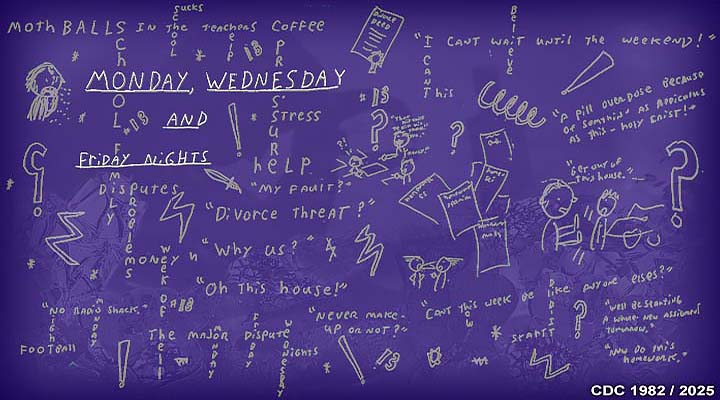 Sucks
MothBALLS IN the teachers coffee
SCHOOL
help
#13
DIVORCE DEED
Believe
"I CANT WAIT UNTIL The weekend!"
I CANT This
MONDAY, WEDNESDAY
AND
FRiDAY NiGHTS
SCHOOL FAMILY
PROBLEMS
PRESSURE
Stress
heLP
#13
#13
?
!
?
?
?
"A PILL OVERDOSE BECAUSE
OF SOMTHING AS RIDICULOUS
AS THIS - HOLY CHRIST!"
"Get out of
this house."
DisPUTES
"MY FAULT?"
"DIVORCE THREAT?"
MONEY
"Why us?"
"Oh This house!"
WEEK OF hell
#13
"NO RADIO SHACK."
MONDAY
FOOTBALL
The MAJOR DisPUTE
FRIDAY
Nights
WEDNESDAY
"NEVER MAKE-
UP OR NOT?"
"CANT This week be like anyone elses?"
START!
"Well be starting
a whole new assignment
tomorrow."
"NOW DO This
homework."
!
!
13
?
CDC 1982 / 2025